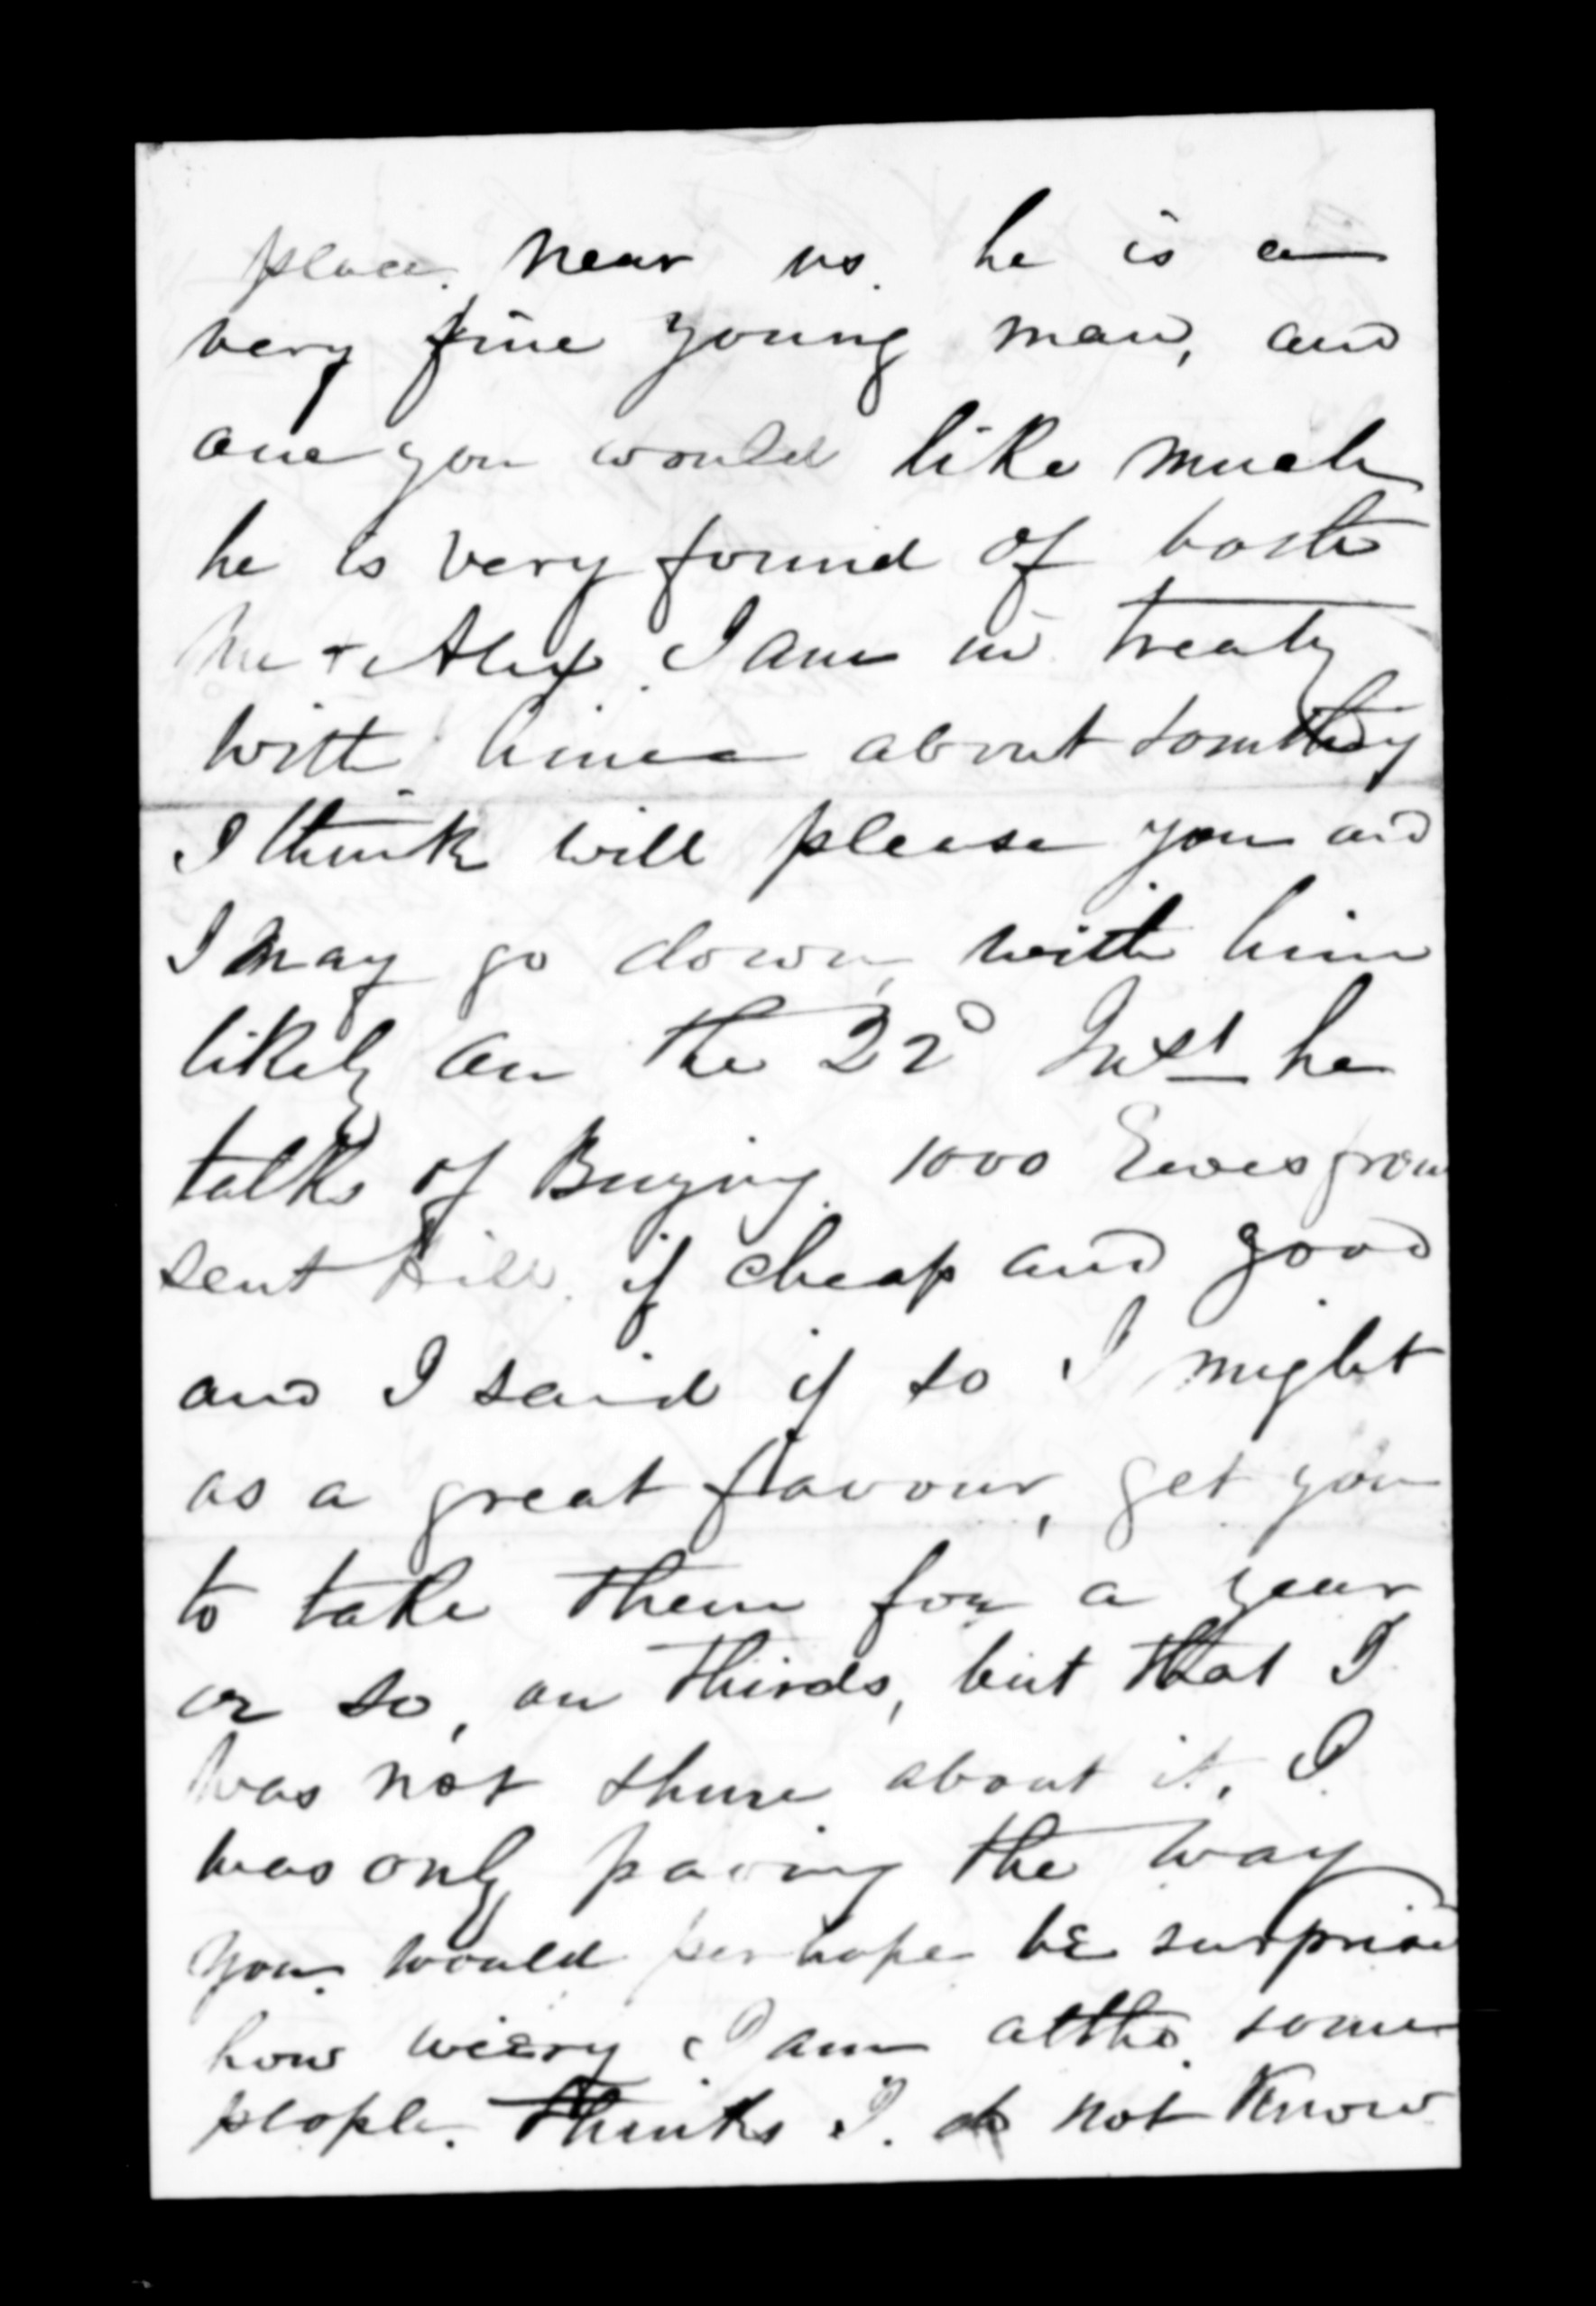 place. near us. he is a
very fine young man, and
one you would like much
he is very found of both
me & Alex. I am in treaty
with him about somthing
I think will please you and
I may go down, with him
likely on the 22d Inst he
talks of Buying. 1000 Ewes from
sent Hill. if cheap and good
and I said if so I might
as a great flavour, get you
to take them for a year
or so, on thirds, but that I
was not shure about it. I
was only paving the way
you. would perhape be surprised
how wiery I am atthe. some
people. thinks I. do not Know